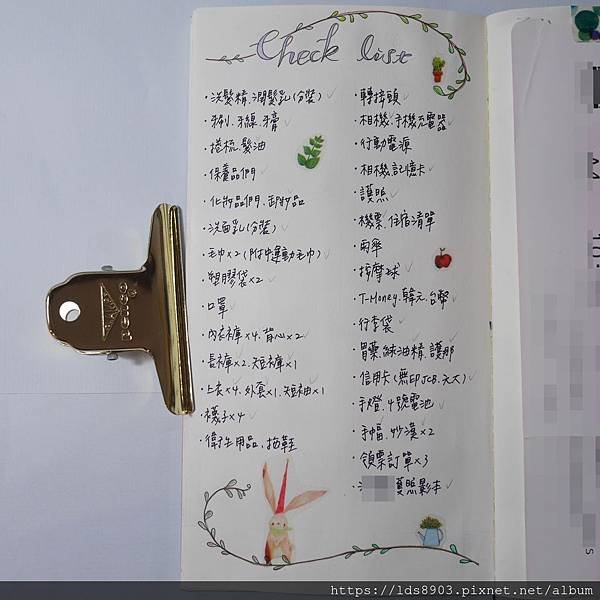 Check list
·洗髮精、潤髮乳(分裝)
·牙刷、牙線、牙膏
·捲梳、髮油
·保養品們
·化妝品們、卸妝品
·洗面乳(分裝)
·毛巾×2(附中運動毛巾)
·塑膠袋×2
·口罩
·內衣褲×4、背心×2
·長褲×2、短褲×1
·上衣×4、外套×1、短袖×1
·襪子×4
·衛生用品、拖鞋
·轉接頭
·相機、手機充電器
·行動電源
·相機記憶卡
·護照
·機票、住宿清單
·雨傘
·按摩球
·T-Money、韓元、台幣
·行李袋
·胃藥、綠油精、護那
·信用卡(無印JCB、元大)
·手燈、4號電池
·手幅、
·領票訂單×3
護照影本
https://lds8903.pixnet.net/album